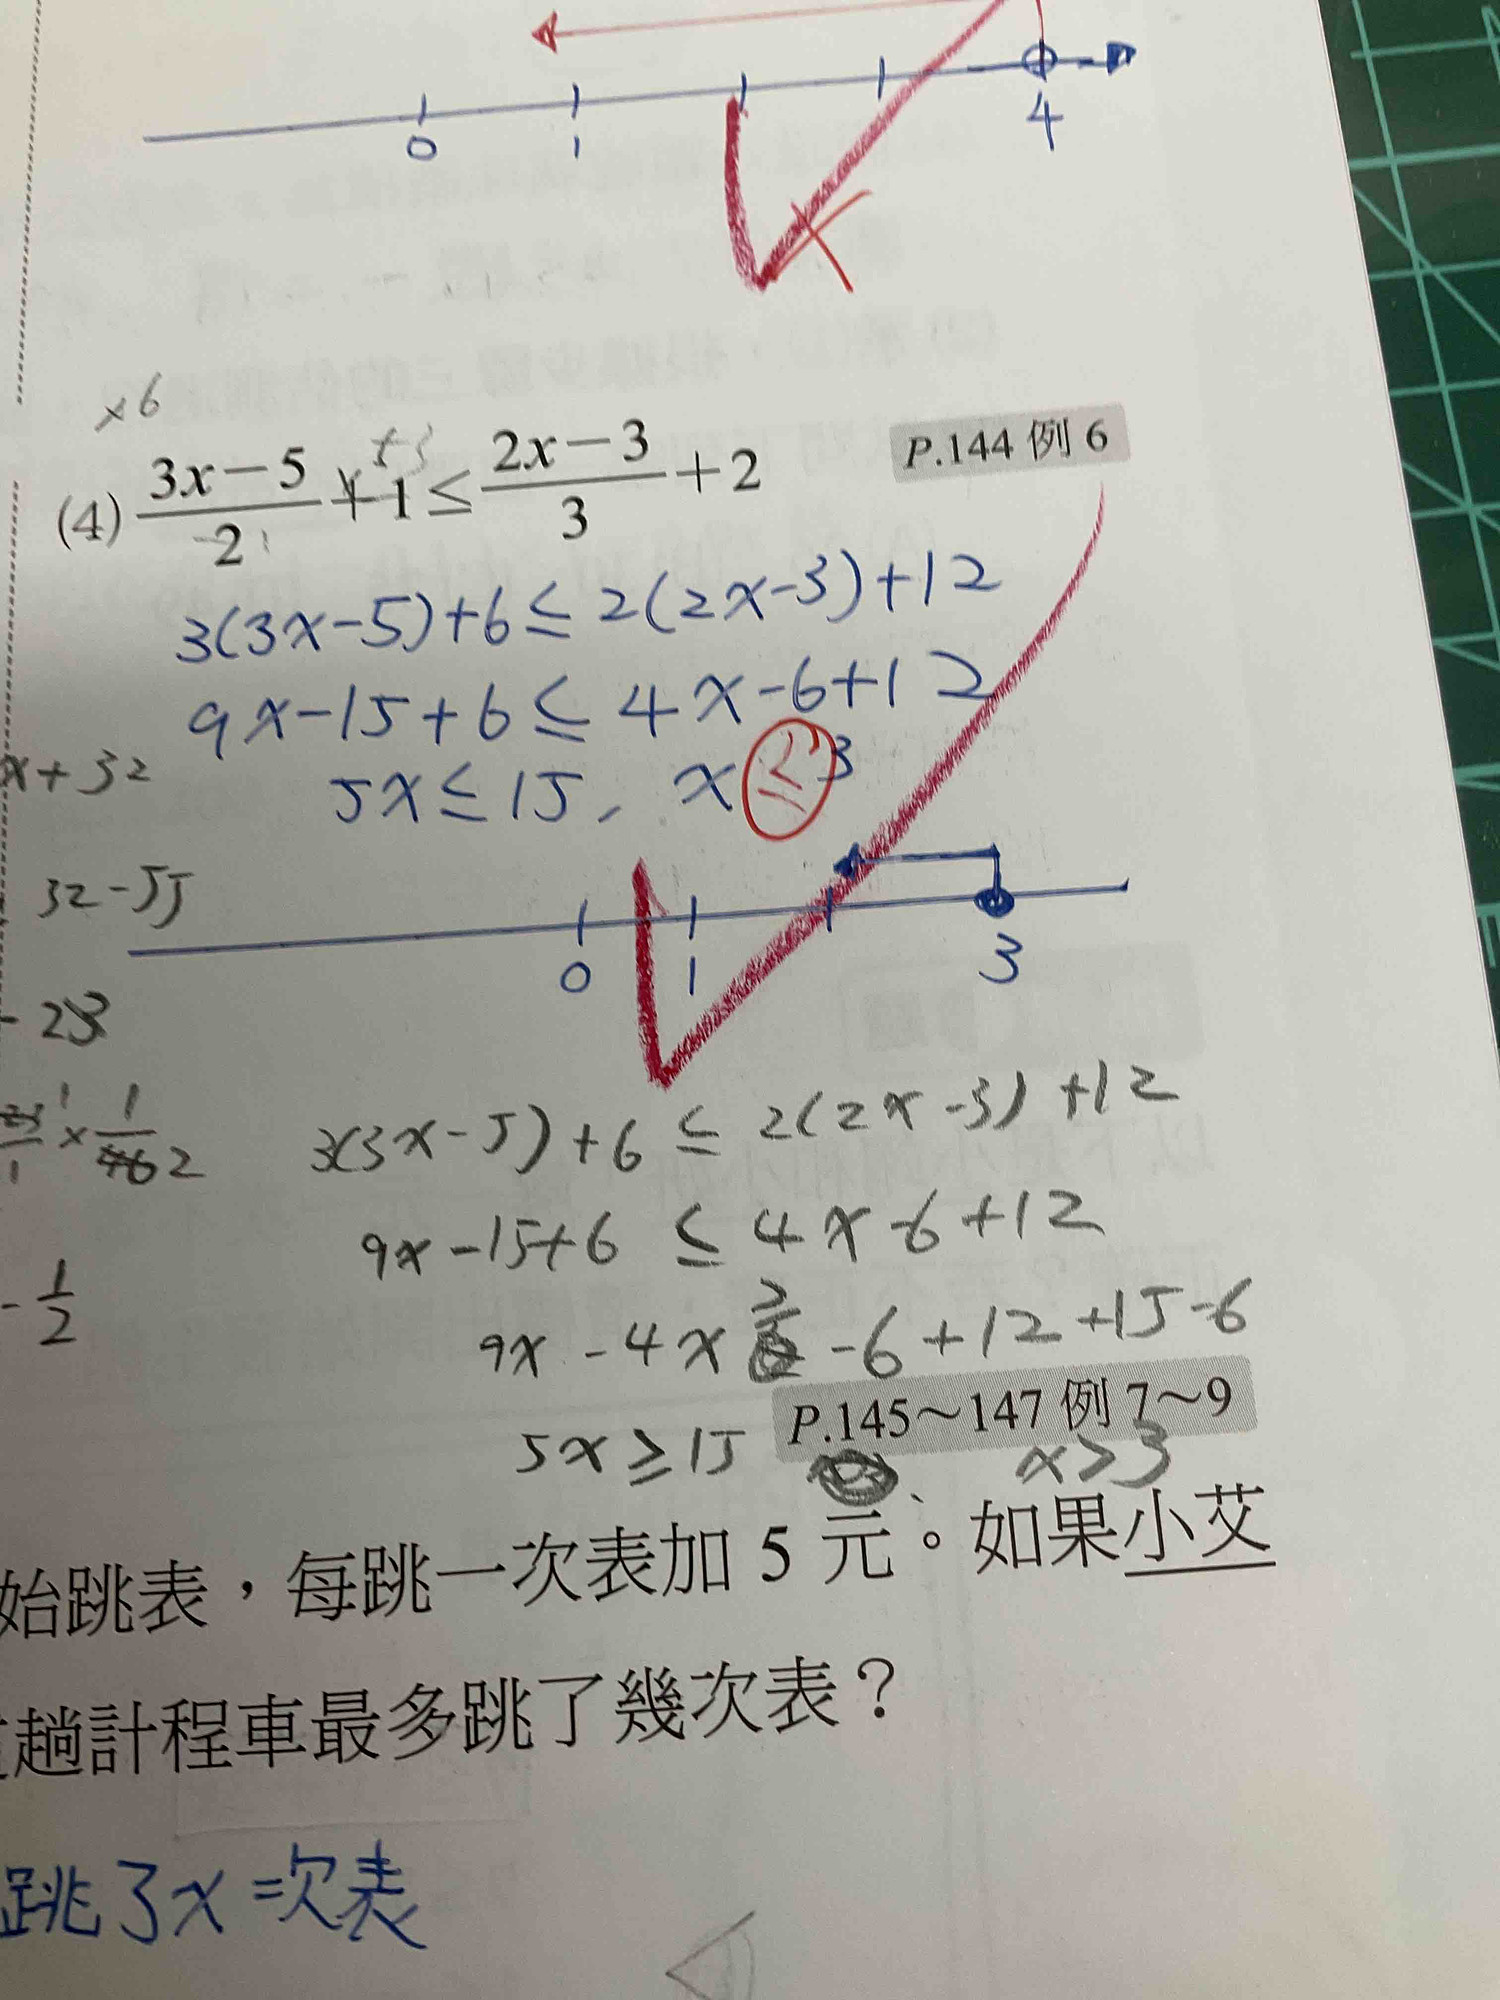 0 1 4
×6
+3
(4) (3x-5)/2 + 1 ≤ (2x-3)/3 + 2 P.144 例 6
3(3x-5)+6 ≤ 2(2x-3)+12
9x-15+6 ≤ 4x-6+12
x+32
5x ≤ 15, x ≤ 3
32-55
0 1 3
-23
1/1 × 1/2
3(3x-5)+6 ≤ 2(2x-3)+12
9x-15+6 ≤ 4x-6+12
-1/2
9x-4x ≥ -6+12+15-6
P.145～147 例 7～9
5x ≥ 15 x>3
始跳表，每跳一次表加 5 元。如果小艾
趟計程車最多跳了幾次表？
跳了x=次表